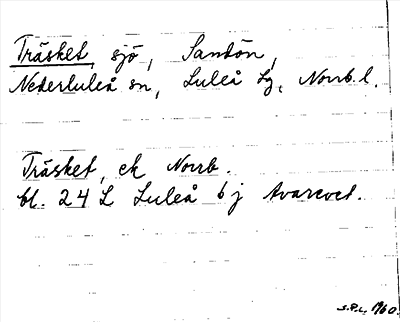 Träsket, sjö, Sandön,
Nederluleå sn, Luleå tg, Norrb. l.
Träsket, ek Norrb.
bl. 24 L Luleå 6 j
S.R.L. 1960.